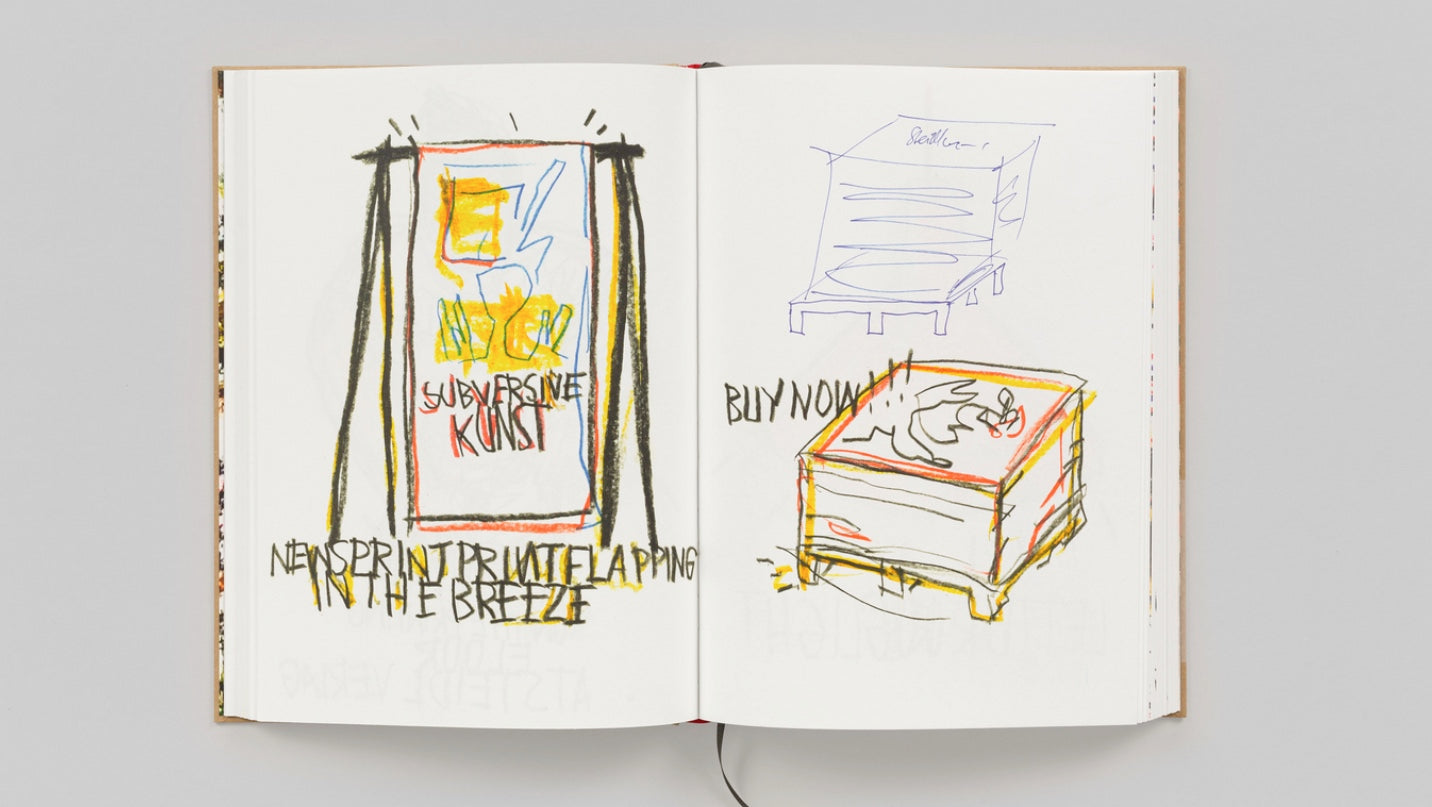 SUBVERSIVE
KUNST
NEWSPRINT PRINT FLAPPING
IN THE BREEZE
BUY NOW!!!